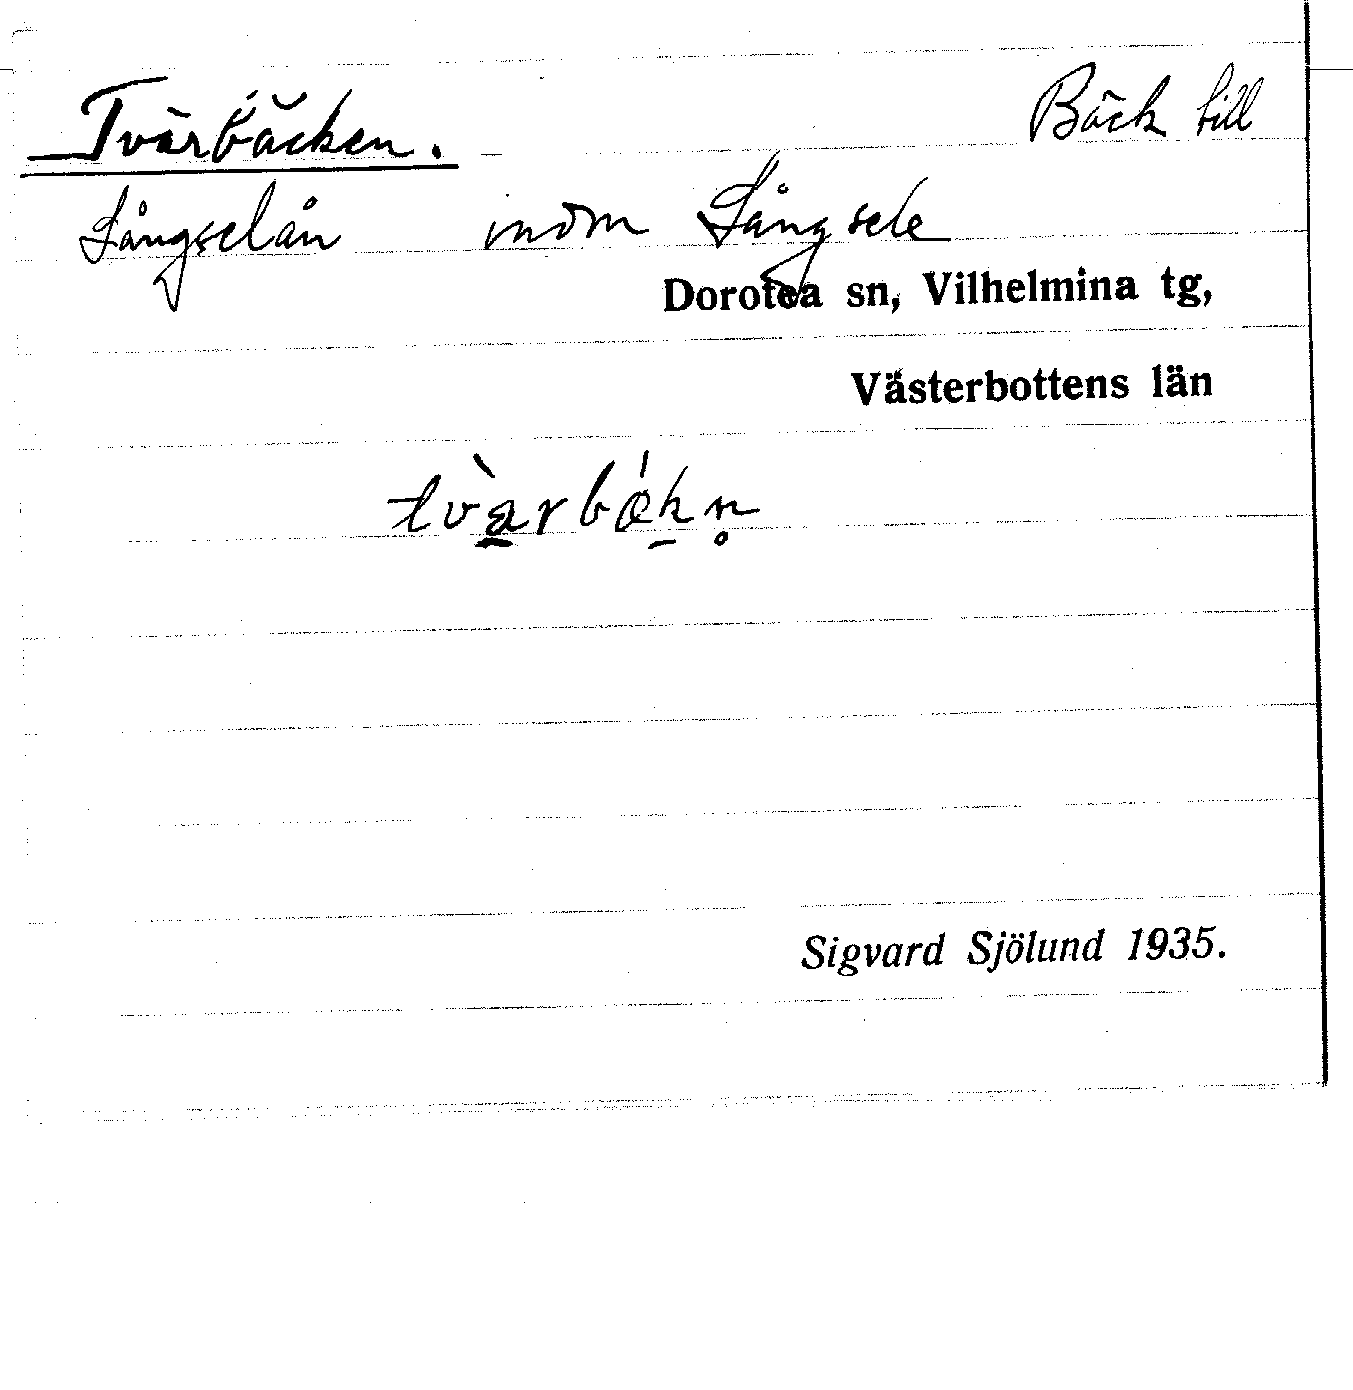 Tvärbäcken. Bäck till
Långselån inom Långsele
Dorotea sn, Vilhelmina tg,
Västerbottens län
tvàrbǽk̠n̥
Sigvard Sjölund 1935.